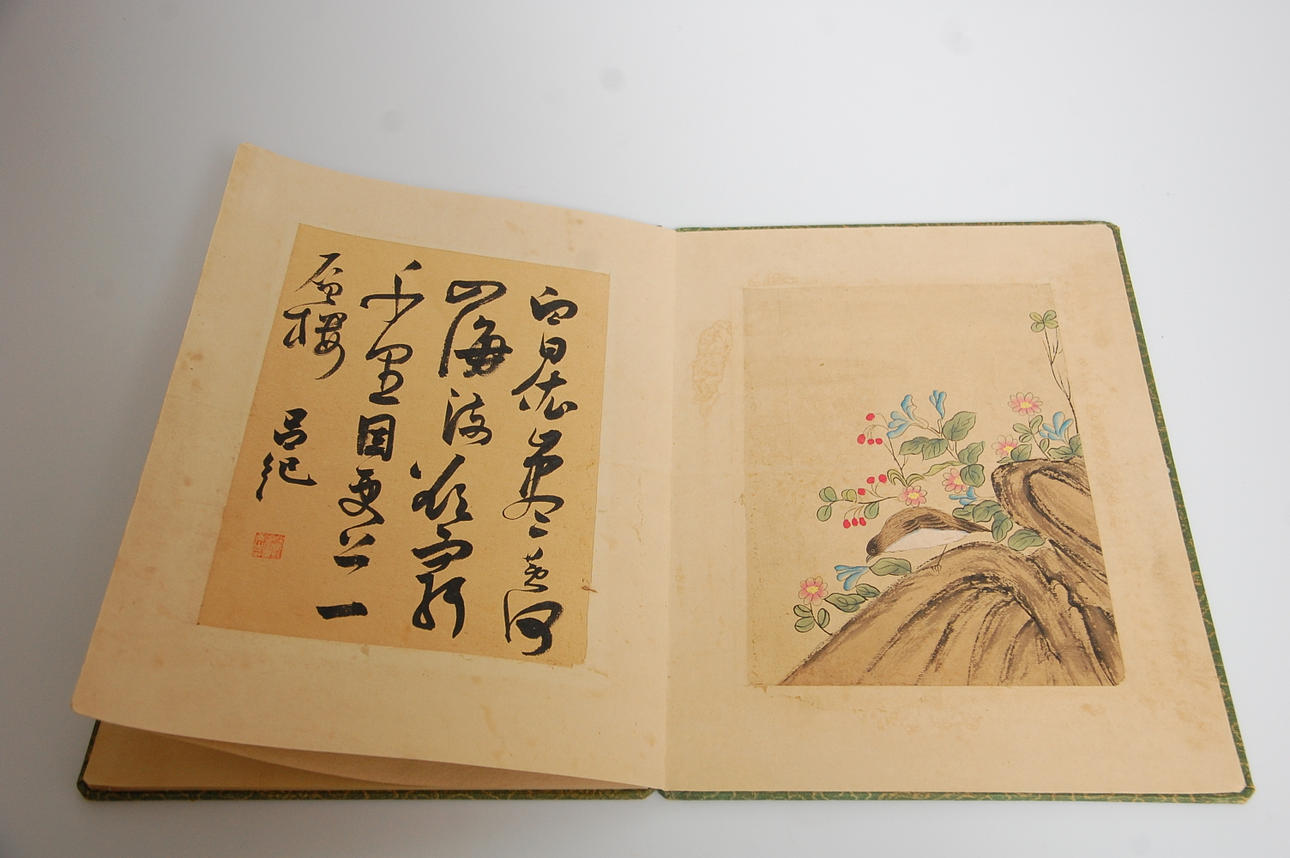 白日依山盡黃河
入海流欲窮
千里目更上一
層樓
呂紀